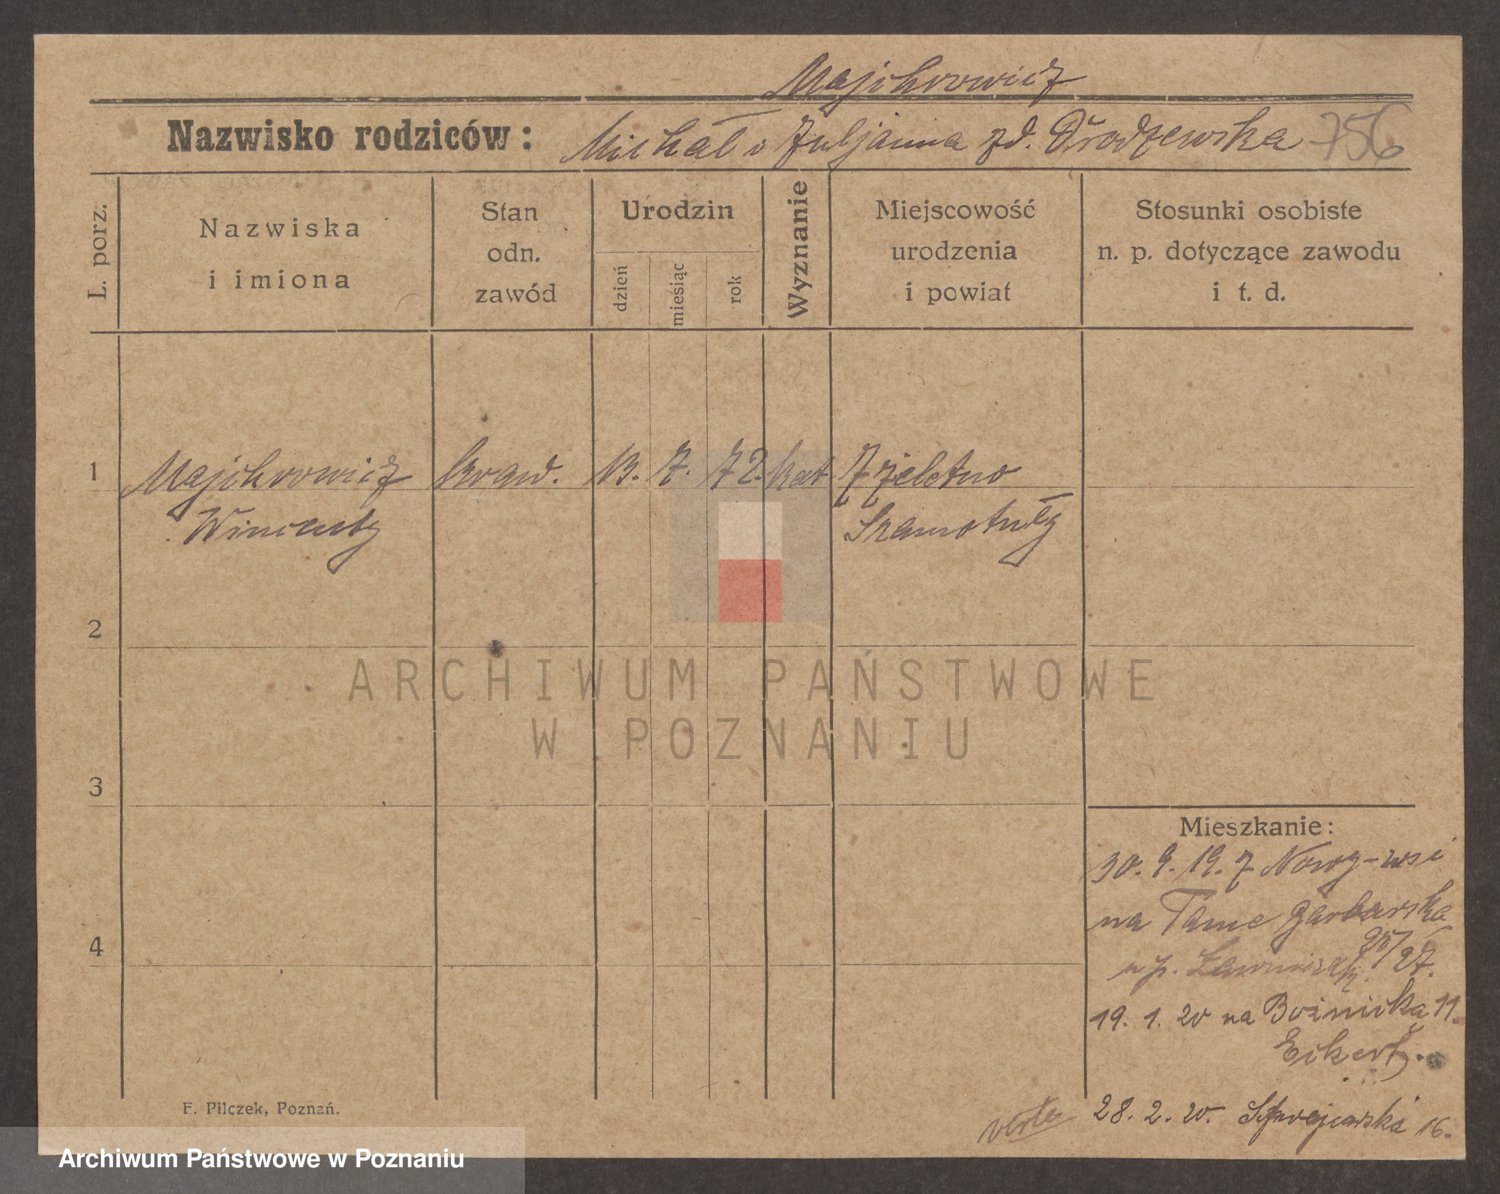 Majchrowicz
Nazwisko rodziców: Michał i Juljanna zd. Drodzewska 756
L. porz.
Nazwiska
i imiona
Stan
odn.
zawód
Urodzin
dzień
miesiąc
rok
Wyznanie
Miejscowość
urodzenia
i powiat
Stosunki osobiste
n. p. dotyczące zawodu
i t. d.
1 Majchrowicz kraw. 13. 7. 72. kat.
Wincenty Szamotuły
2
ARCHIWUM PAŃSTWOWE
W POZNANIU
3
Mieszkanie:
30. 9. 19. z Nowej-wsi
na Tamę Garbarską
4
u p.
19. 1. 20 na Bożnicka 11.
Eckert.
28. 2. 20. 16.
F. Pilczek, Poznań.
Archiwum Państwowe w Poznaniu